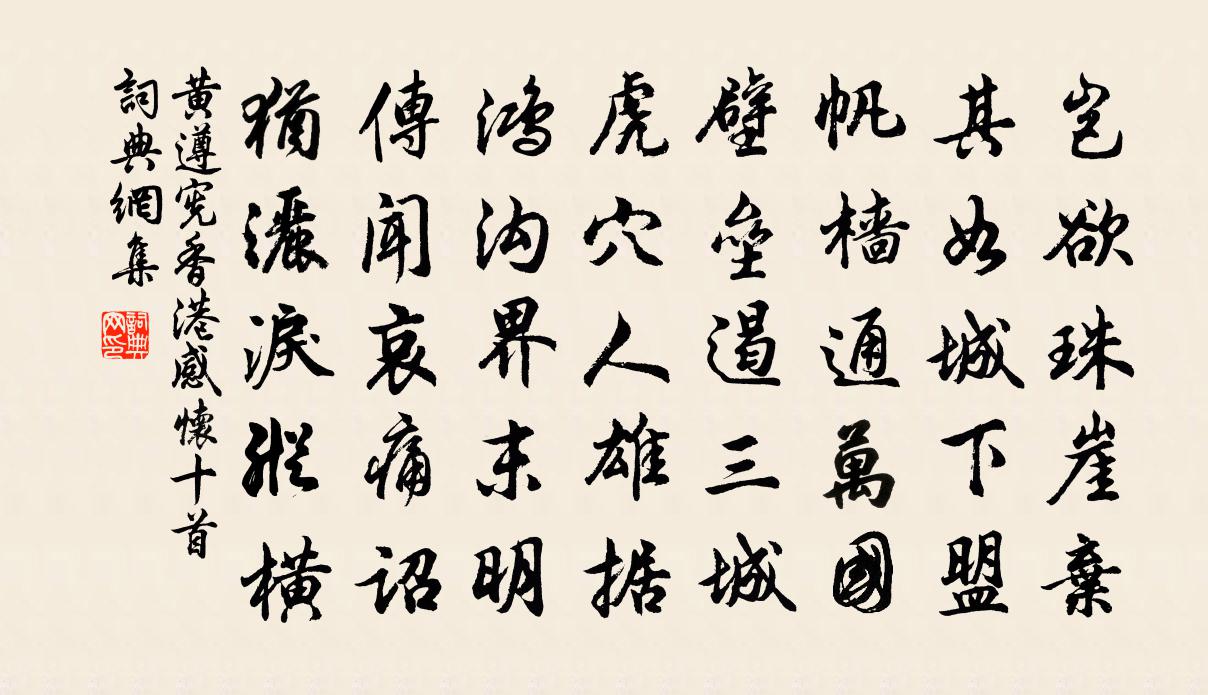 豈欲珠崖棄
其如城下盟
帆檣通萬國
壁壘逼三城
虎穴人雄据
鴻沟界未明
傳聞哀痛詔
猶灑淚縱橫
黃遵宪香港感懷十首
詞典網集
詞典
网印